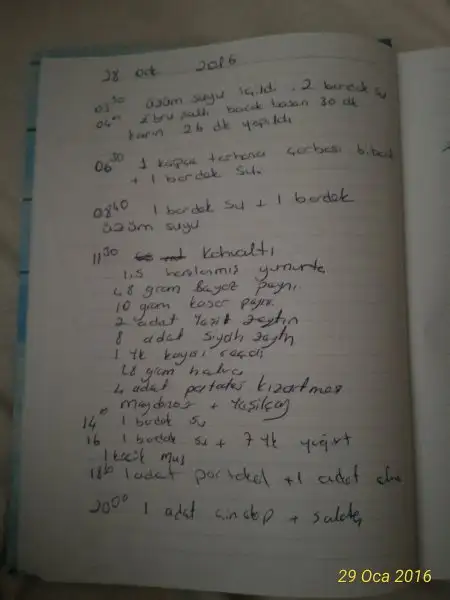 28 Ocak 2016
05³⁰ üzüm suyu içildi. 2 bardak su
bacak basen 30 dk
karın 26 dk yapıldı
06³⁰ 1 kepçe tarhana çorbası biber
+ 1 bardak su
08⁴⁰ 1 bardak su + 1 bardak
üzüm suyu
11³⁰ kahvaltı
1,5 haşlanmış yumurta
48 gram beyaz peynir
10 gram kaşar peynir
2 adet yeşil zeytin
8 adet siyah zeytin
1 yk kayısı reçeli
28 gram helva
4 adet patates kızartması
maydanoz + yeşilçay
14⁰ 1 bardak su
16 1 bardak su + 7 yk yoğurt
1 küçük muz
18³⁰ 1 adet portakal + 1 adet elma
20⁰⁰ 1 adet çinekop + salata
29 Oca 2016